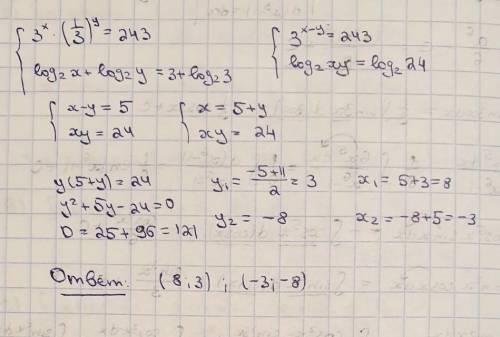 { 3^x · (1/3)^y = 243
log₂x + log₂y = 3 + log₂3
{ 3^(x-y) = 243
log₂xy = log₂24
{ x-y = 5
xy = 24
{ x = 5+y
xy = 24
y(5+y) = 24
y² + 5y - 24 = 0
D = 25 + 96 = 121
y₁ = (-5+11)/2 = 3
y₂ = -8
x₁ = 5+3 = 8
x₂ = -8+5 = -3
Ответ: (8;3) ; (-3;-8)